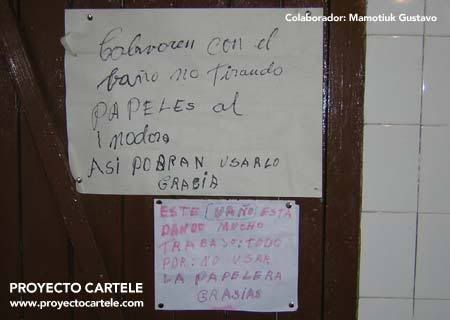 Colaborador: Mamotiuk Gustavo
Colavoren con el
baño no tirando
PAPELES al
inodoro
ASI PODRAN USARLO
GRACIA
ESTE VAÑO ESTA
DANDO MUCHO
TRABAJO: TODO
POR: NO USAR
LA PAPELERA
GRASIAS
PROYECTO CARTELE
www.proyectocartele.com